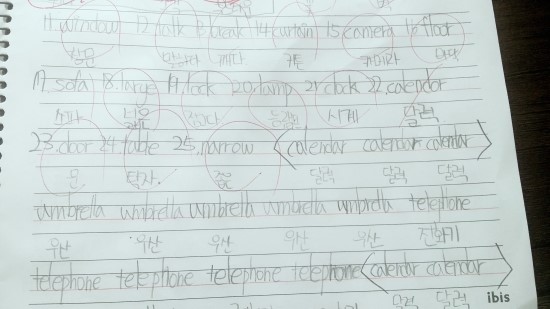 11. window 12. talk 13. break 14. curtain 15. camera 16. floor
창문 말하다 깨다 커튼 카메라 바닥
17. sofa 18. large 19. lock 20. lamp 21. clock 22. calendar
소파 넓은 잠그다 등 시계 달력
23. door 24. table 25. narrow < calendar calendar calendar >
문 탁자 좁은 달력 달력 달력
umbrella umbrella umbrella umbrella umbrella telephone
우산 우산 우산 우산 우산 전화기
telephone telephone telephone telephone < calendar calendar >
달력 달력
ibis